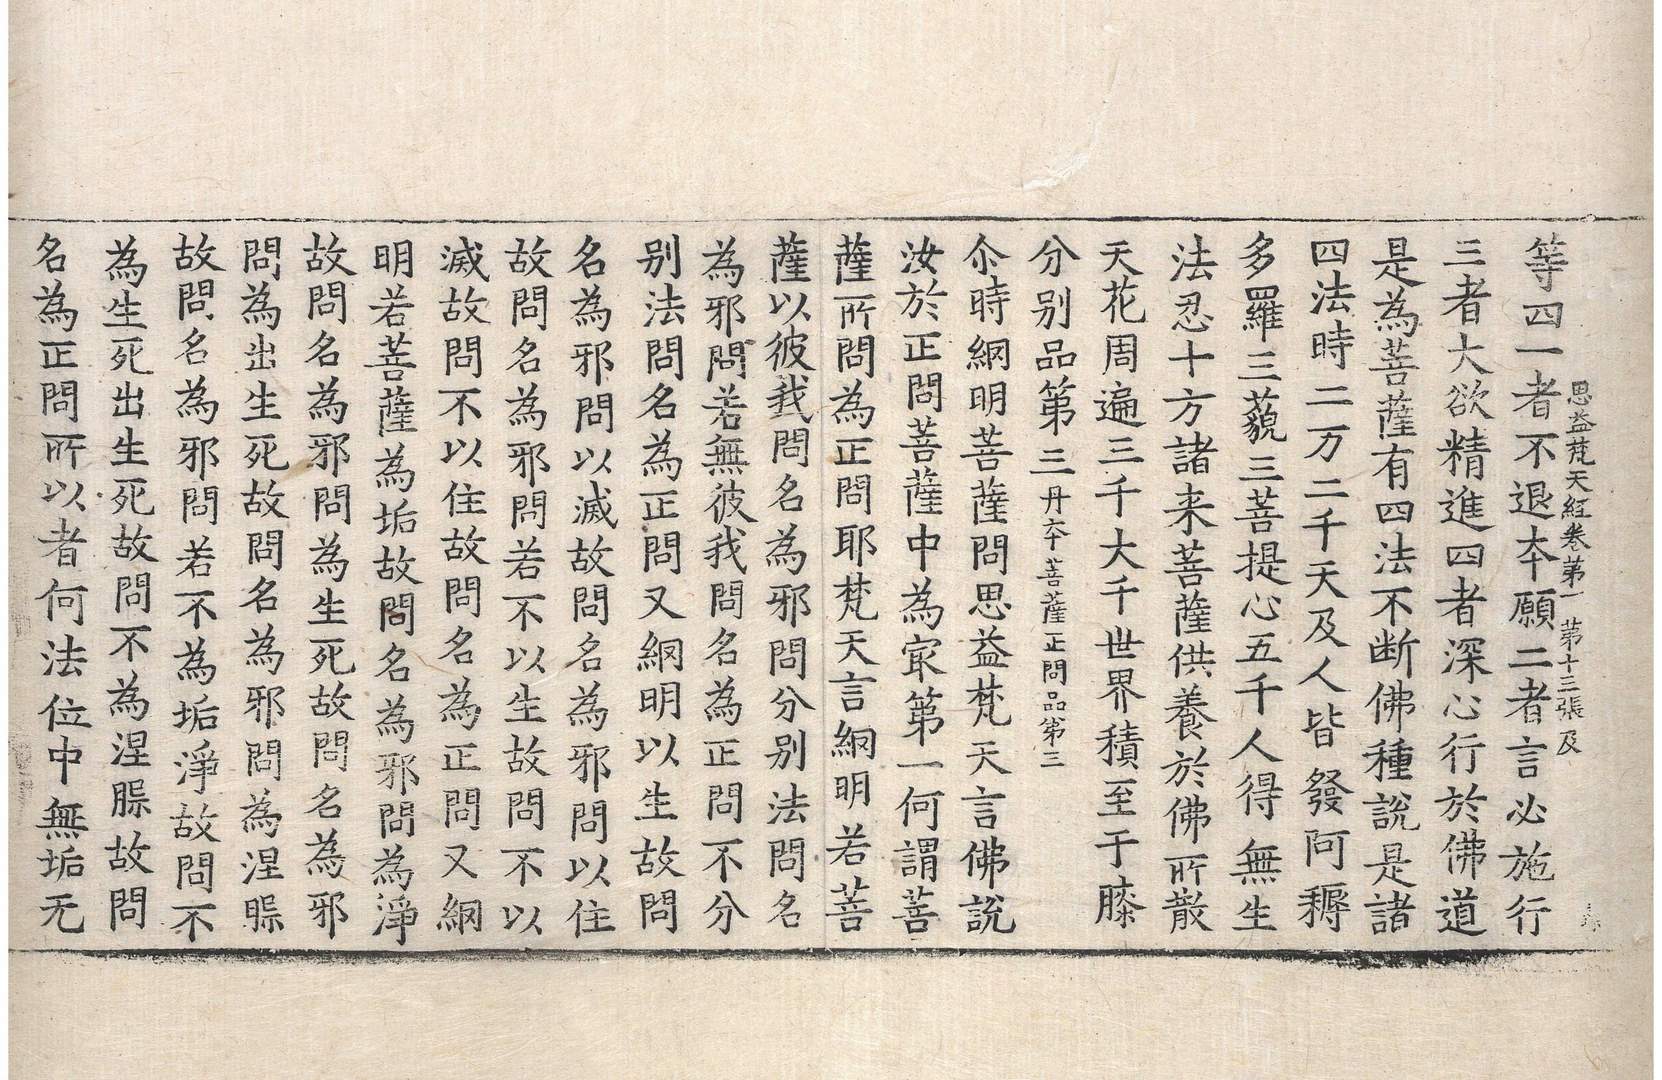 思益梵天経卷第一 第十三張 及
等四一者不退夲願二者言必施行
三者大欲精進四者深心行於佛道
是為菩薩有四法不断佛種說是諸
四法時二万二千天及人皆發阿耨
多羅三藐三菩提心五千人得無生
法忍十方諸来菩薩供養於佛所散
天花周遍三千大千世界積至于膝
分别品第三丹夲菩薩正問品第三
尒時網明菩薩問思益梵天言佛說
汝於正問菩薩中為㝡第一何謂菩
薩所問為正問耶梵天言網明若菩
薩以彼我問名為邪問分别法問名
為邪問若無彼我問名為正問不分
别法問名為正問又網明以生故問
名為邪問以滅故問名為邪問以住
故問名為邪問若不以生故問不以
滅故問不以住故問名為正問又網
明若菩薩為垢故問名為邪問為淨
故問名為邪問為生死故問名為邪
問為出生死故問名為邪問為涅槃
故問名為邪問若不為垢淨故問不
為生死出生死故問不為涅槃故問
名為正問所以者何法位中無垢无